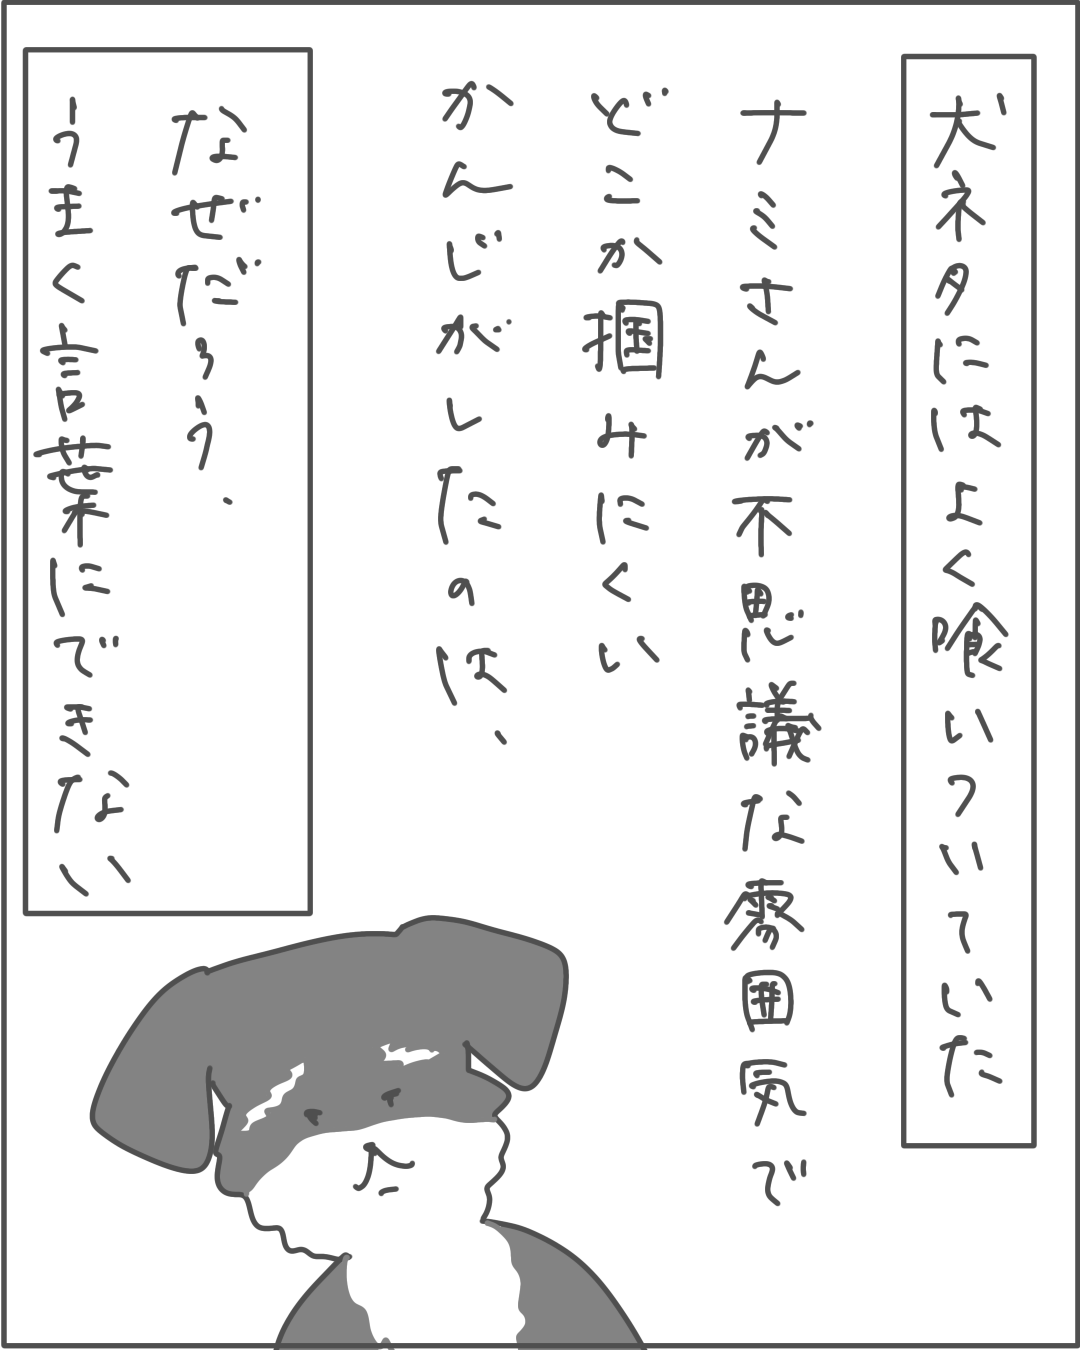 犬ネタにはよく喰いついていた
ナミさんが不思議な雰囲気で
どこか掴みにくい
かんじがしたのは、
なぜだろう、
うまく言葉にできない